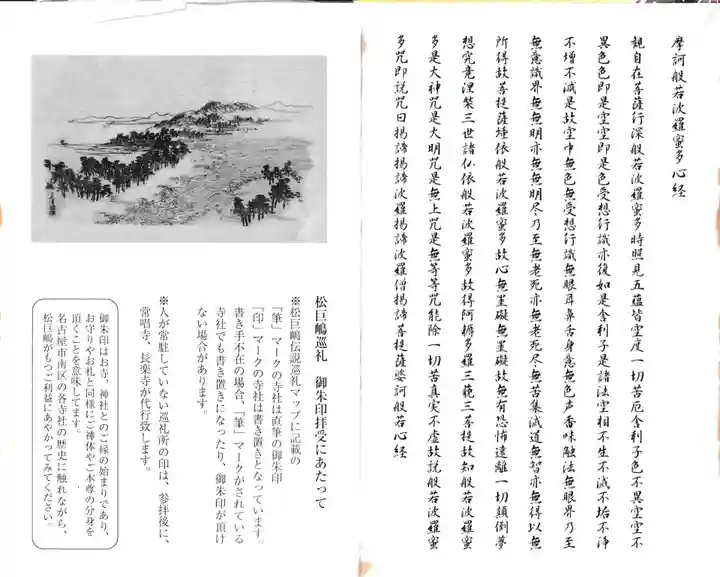 摩訶般若波羅蜜多心経
観自在菩薩行深般若波羅蜜多時照見五蘊皆空度一切苦厄舎利子色不異空空不
異色色即是空空即是色受想行識亦復如是舎利子是諸法空相不生不滅不垢不浄
不増不減是故空中無色無受想行識無眼耳鼻舌身意無色声香味触法無眼界乃至
無意識界無無明亦無無明尽乃至無老死亦無老死尽無苦集滅道無智亦無得以無
所得故菩提薩埵依般若波羅蜜多故心無罣礙無罣礙故無有恐怖遠離一切顛倒夢
想究竟涅槃三世諸仏依般若波羅蜜多故得阿耨多羅三藐三菩提故知般若波羅蜜
多是大神咒是大明咒是無上咒是無等等咒能除一切苦真実不虚故説般若波羅蜜
多咒即説咒曰掲諦掲諦波羅掲諦波羅僧掲諦菩提薩婆訶般若心経
松巨嶋巡礼 御朱印拝受にあたって
※松巨嶋伝説巡礼マップに記載の
「筆」マークの寺社は直筆の御朱印
「印」マークの寺社は書き置きとなっています。
書き手不在の場合、「筆」マークがされている
寺社でも書き置きになったり、御朱印が頂け
ない場合があります。
※人が常駐していない巡礼所の印は、参拝後に、
常唱寺、長楽寺が代行致します。
御朱印はお寺、神社とのご縁の始まりであり、
お守りやお札と同様にご神体やご本尊の分身を
頂くことを意味してます。
名古屋市南区の各寺社の歴史に触れながら、
松巨嶋がもつご利益にあやかってみてください。